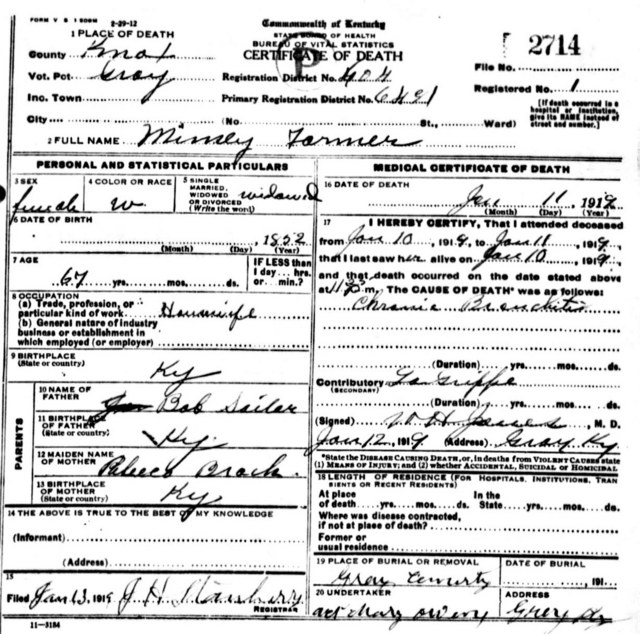 FORM V S 1 50M 2-29-12
Commonwealth of Kentucky
STATE BOARD OF HEALTH
BUREAU OF VITAL STATISTICS
CERTIFICATE OF DEATH
File No. 2714
Registered No. 1
[If death occurred in a hospital or institution, give its NAME instead of street and number.]
1 PLACE OF DEATH
County Knox
Vot. Pct Gray
Registration District No. 404
Inc. Town
Primary Registration District No. 6421
City (No. St., Ward)
2 FULL NAME Farmer
PERSONAL AND STATISTICAL PARTICULARS
3 SEX female
4 COLOR OR RACE W
5 SINGLE MARRIED, WIDOWED OR DIVORCED (Write the word) widowed
6 DATE OF BIRTH
1852
(Month) (Day) (Year)
7 AGE
67 yrs. mos. ds.
IF LESS than 1 day... hrs. or min.?
8 OCCUPATION
(a) Trade, profession, or particular kind of work Housewife
(b) General nature of industry business or establishment in which employed (or employer)
9 BIRTHPLACE
(State or country) Ky
PARENTS
10 NAME OF FATHER Bob Sailor
11 BIRTHPLACE OF FATHER
(State or country) Ky.
12 MAIDEN NAME OF MOTHER Brock.
13 BIRTHPLACE OF MOTHER
(State or country) Ky
14 THE ABOVE IS TRUE TO THE BEST OF MY KNOWLEDGE
(Informant)
(Address)
15
Filed Jan 13, 1919 J H Stansbury
REGISTRAR
11-3184
MEDICAL CERTIFICATE OF DEATH
16 DATE OF DEATH
Jan 11 1919
(Month) (Day) (Year)
17 I HEREBY CERTIFY, That I attended deceased
from Jan 10, 1919, to Jan 11, 1919,
that I last saw her alive on Jan 10, 1919,
and that death occurred on the date stated above
at 11 P.m. The CAUSE OF DEATH* was as follows:
Chronic Bronchitis
(Duration) yrs. mos. ds.
Contributory La Grippe
(SECONDARY)
(Duration) yrs. mos. ds.
(Signed) M. D.
Jan 12, 1919 (Address) Gray, Ky
*State the DISEASE CAUSING DEATH, or, in deaths from VIOLENT CAUSES state
(1) MEANS OF INJURY; and (2) whether ACCIDENTAL, SUICIDAL or HOMICIDAL
18 LENGTH OF RESIDENCE (FOR HOSPITALS, INSTITUTIONS, TRANSIENTS OR RECENT RESIDENTS)
At place of death yrs. mos. ds. In the State yrs. mos. ds.
Where was disease contracted,
if not at place of death?
Former or
usual residence
19 PLACE OF BURIAL OR REMOVAL
DATE OF BURIAL
, 191
20 UNDERTAKER
ADDRESS